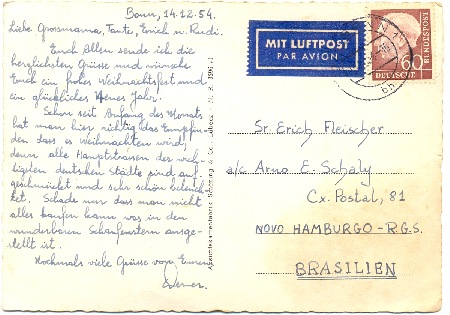 Bonn, 14.12.54.
Liebe Grossmama, Tante, Erich u. Rudi.
Euch Allen sende ich die
herzlichsten Grüsse und wünsche
Euch ein frohes Weihnachtsfest und
ein glückliches Neues Jahr.
Schon seit Anfang des Monats
hat man hier richtig das Empfin-
den dass es Weihnachten wird,
denn alle Hauptstrassen der wich-
tigsten deutschen Städte sind auf-
geschmückt und sehr schön beleuch-
tet. Schade nur dass man nicht
alles kaufen kann was in den
wunderbaren Schaufenstern ausge-
stellt ist.
Nochmals viele Grüsse von Eurem
MIT LUFTPOST
PAR AVION
60
DEUTSCHE
BUNDESPOST
Sr. Erich Fleischer
a/c Arno E. Schaly
Cx. Postal, 81
NOVO HAMBURGO - R.G.S.
BRASILIEN